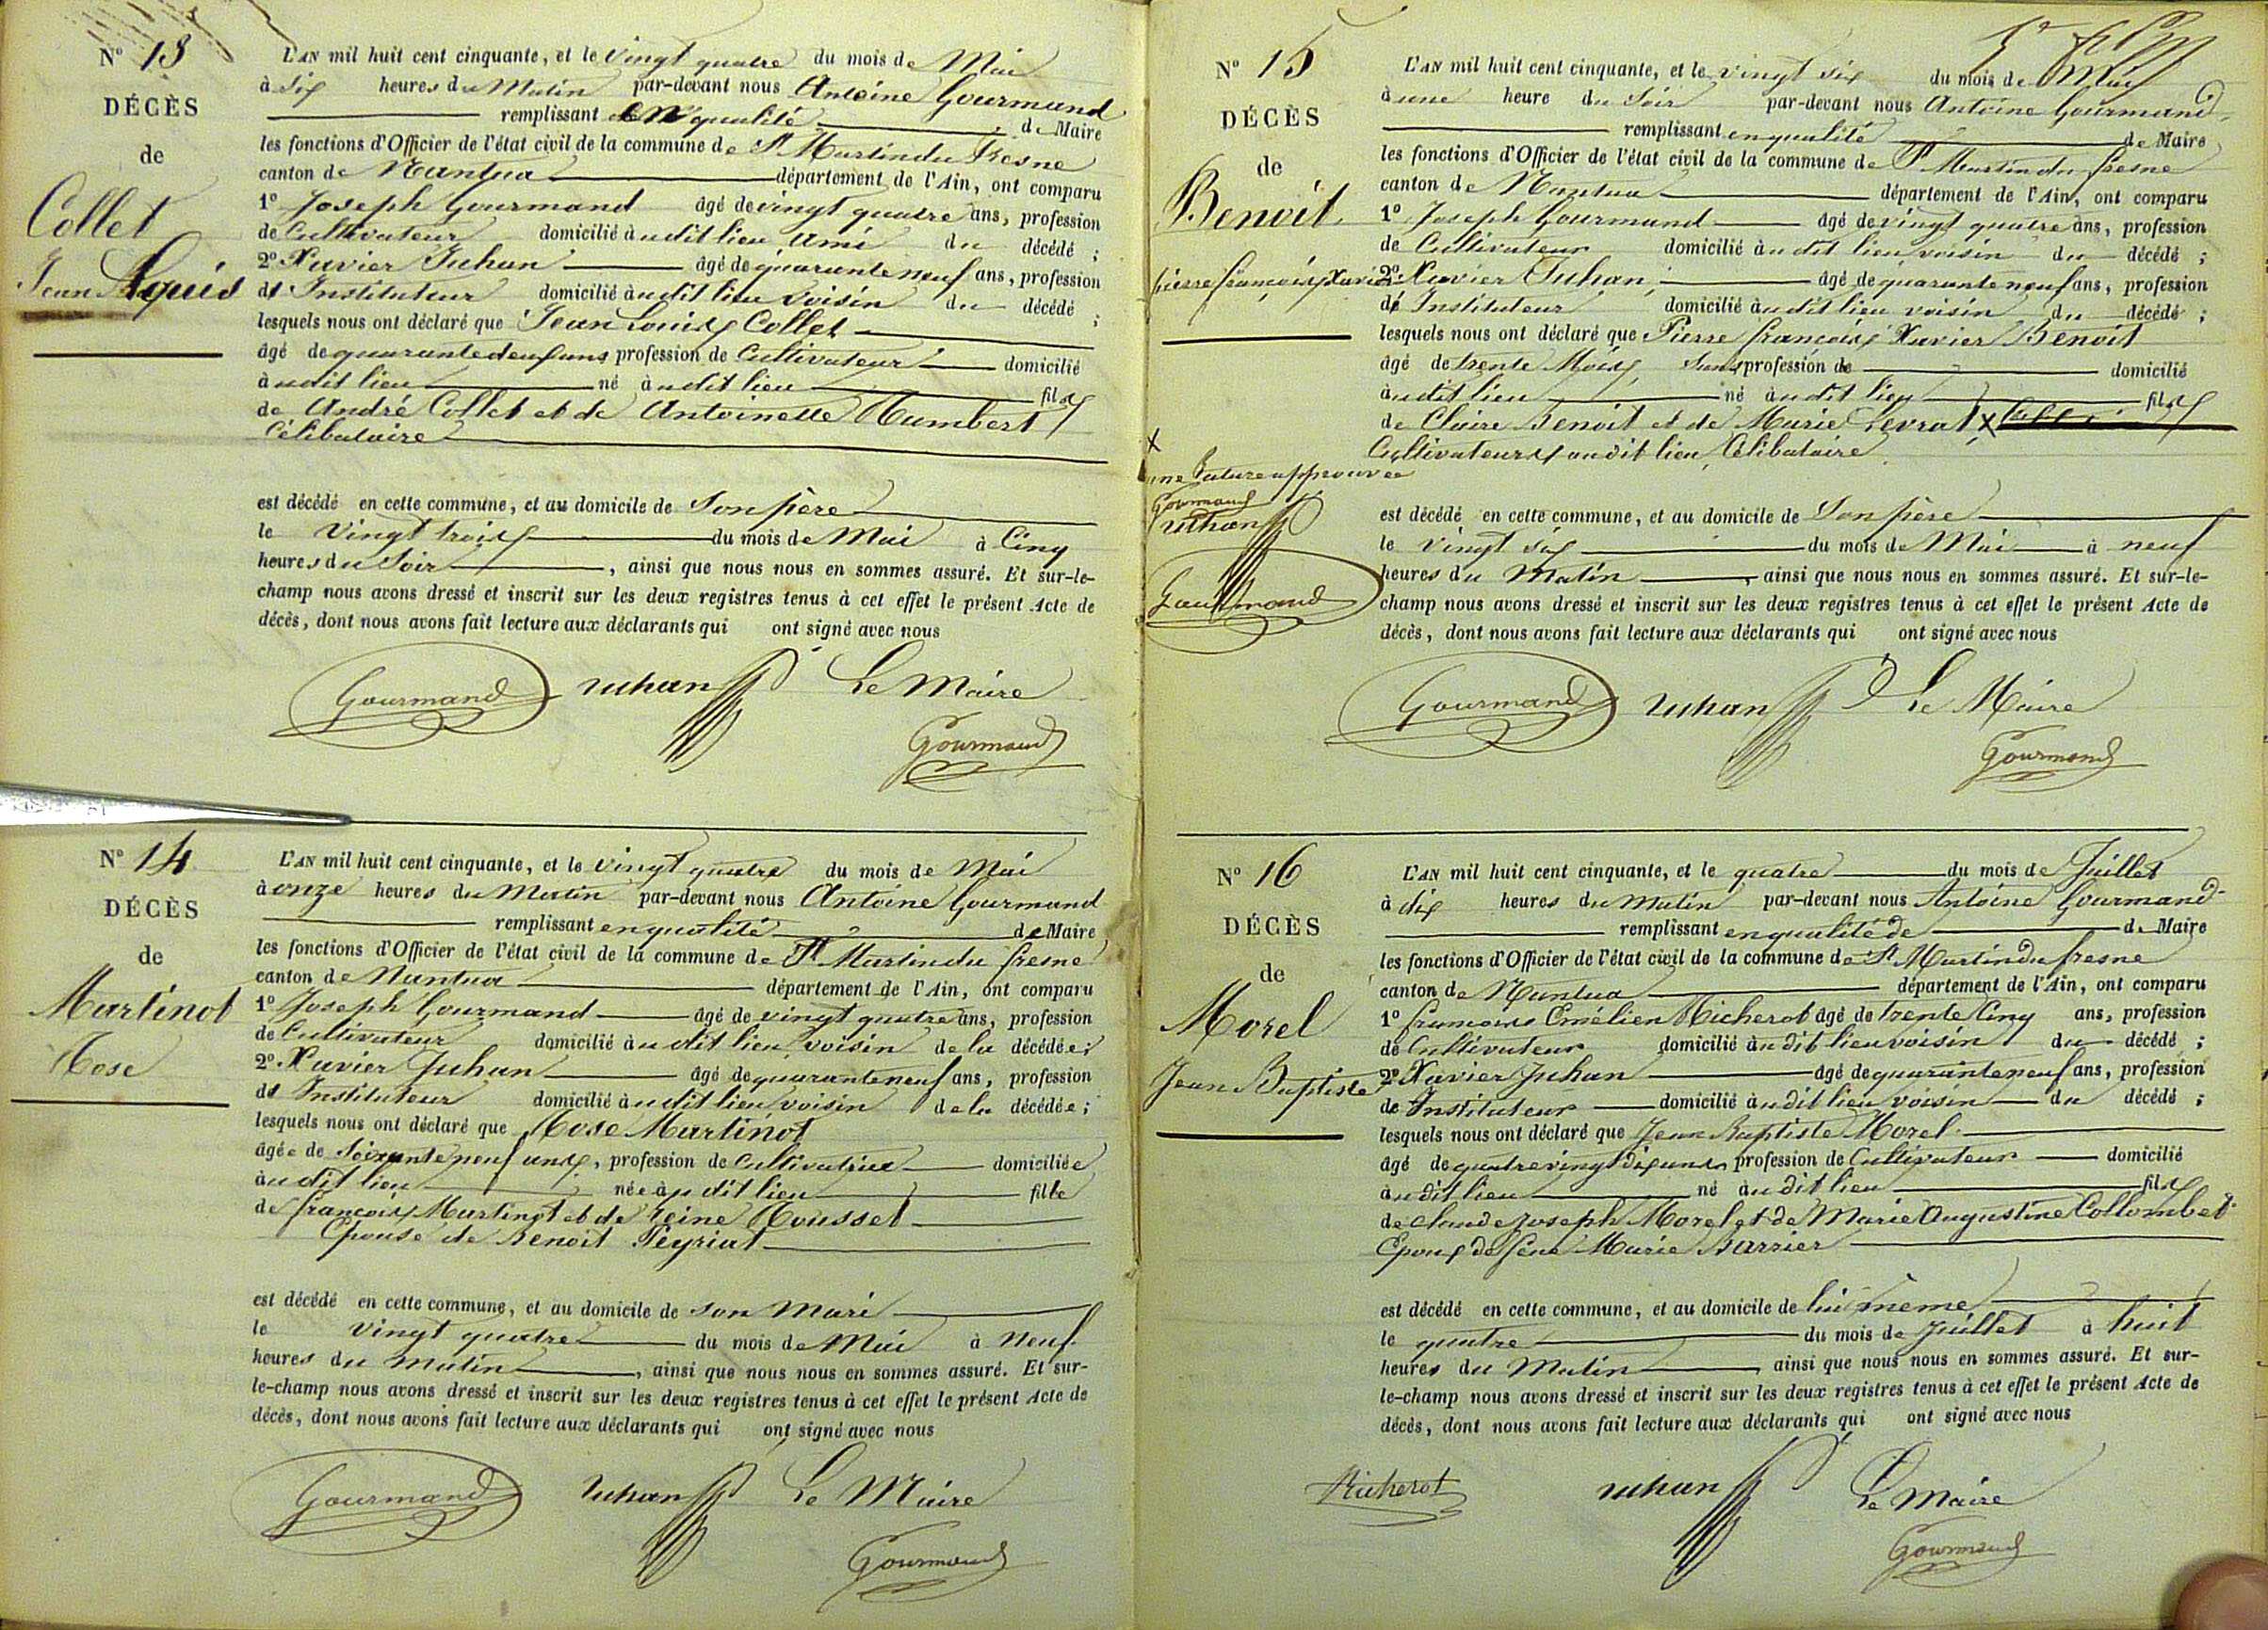 N° 13
DÉCÈS
de
Collet
Jean Louis
L'AN mil huit cent cinquante, et le vingt quatre du mois de Mai
à six heures du Matin par-devant nous Antoine Gourmand
remplissant en qualité de Maire
les fonctions d'Officier de l'état civil de la commune de St Martin du Fresne
canton de Nantua département de l'Ain, ont comparu
1° Joseph Gourmand âgé de vingt quatre ans, profession
de Cultivateur domicilié au dit lieu ami du décédé ;
2° Xavier Juhan âgé de quarante neuf ans, profession
d' Instituteur domicilié au dit lieu voisin du décédé ;
lesquels nous ont déclaré que Jean Louis Collet
âgé de quarante ans profession de Cultivateur domicilié
à udit lieu né à udit lieu fils
de André Collet et de Antoinette Humbert
Célibataire
est décédé en cette commune, et au domicile de Son père
le Vingt trois du mois de Mai à Cinq
heures du Soir , ainsi que nous nous en sommes assuré. Et sur-le-
champ nous avons dressé et inscrit sur les deux registres tenus à cet effet le présent Acte de
décès, dont nous avons fait lecture aux déclarants qui ont signé avec nous
Gourmand Juhan Le Maire
Gourmand
N° 14
DÉCÈS
de
Martinot
Rose
L'AN mil huit cent cinquante, et le vingt quatre du mois de Mai
à onze heures du Matin par-devant nous Antoine Gourmand
remplissant en qualité de Maire
les fonctions d'Officier de l'état civil de la commune de St Martin du fresne
canton de Nantua département de l'Ain, ont comparu
1° Joseph Gourmand âgé de vingt quatre ans, profession
de Cultivateur domicilié au dit lieu voisin de la décédée ;
2° Xavier Juhan âgé de quarante neuf ans, profession
d' Instituteur domicilié au dit lieu voisin de la décédée ;
lesquels nous ont déclaré que Rose Martinot
âgée de Soixante neuf ans, profession de Cultivatrice domiciliée
à udit lieu née à udit lieu fille
de françois Martinot et de Reine Rousset
Epouse de Benoit Peyriat
est décédé en cette commune, et au domicile de son Mari
le vingt quatre du mois de Mai à Neuf
heures du matin , ainsi que nous nous en sommes assuré. Et sur-
le-champ nous avons dressé et inscrit sur les deux registres tenus à cet effet le présent Acte de
décès, dont nous avons fait lecture aux déclarants qui ont signé avec nous
Gourmand Juhan Le Maire
Gourmand
N° 15
DÉCÈS
de
Benoit
pierre françois Xavier
L'AN mil huit cent cinquante, et le vingt six du mois de Mai
à une heure du Soir par-devant nous Antoine Gourmand
remplissant en qualité de Maire
les fonctions d'Officier de l'état civil de la commune de St Martin du fresne
canton de Nantua département de l'Ain, ont comparu
1° Joseph Gourmand âgé de vingt quatre ans, profession
de Cultivateur domicilié au dit lieu voisin du décédé ;
2° Xavier Juhan âgé de quarante neuf ans, profession
d' Instituteur domicilié au dit lieu voisin du décédé ;
lesquels nous ont déclaré que Pierre françois Xavier Benoit
âgé de trente Mois, Sans profession de domicilié
à udit lieu né à udit lieu fils
de Claire Benoit et de Marie Levrat x
Cultivateurs au dit lieu, Célibataire
x
une rature approuvée
Gourmand
Juhan
Gourmand
est décédé en cette commune, et au domicile de Son père
le vingt six du mois de Mai à neuf
heures du Matin , ainsi que nous nous en sommes assuré. Et sur-le-
champ nous avons dressé et inscrit sur les deux registres tenus à cet effet le présent Acte de
décès, dont nous avons fait lecture aux déclarants qui ont signé avec nous
Gourmand Juhan Le Maire
Gourmand
N° 16
DÉCÈS
de
Morel
Jean Baptiste
L'AN mil huit cent cinquante, et le quatre du mois de Juillet
à dix heures du matin par-devant nous Antoine Gourmand
remplissant en qualité de de Maire
les fonctions d'Officier de l'état civil de la commune de St Martin du fresne
canton de Nantua département de l'Ain, ont comparu
1° françois Emélien Richerot âgé de trente Cinq ans, profession
de Cultivateur domicilié au dit lieu voisin du décédé ;
2° Xavier Juhan âgé de quarante neuf ans, profession
de Instituteur domicilié au dit lieu voisin du décédé ;
lesquels nous ont déclaré que Jean Baptiste Morel
âgé de quatre vingt dix ans profession de Cultivateur domicilié
à udit lieu né à udit lieu fils
de claude joseph Morel et de Marie Augustine Collombet
Epoux de feue Marie Barrier
est décédé en cette commune, et au domicile de lui même
le quatre du mois de Juillet à huit
heures du Matin ainsi que nous nous en sommes assuré. Et sur-
le-champ nous avons dressé et inscrit sur les deux registres tenus à cet effet le présent Acte de
décès, dont nous avons fait lecture aux déclarants qui ont signé avec nous
Richerot Juhan Le Maire
Gourmand